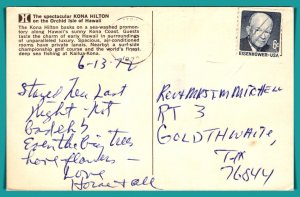 The spectacular KONA HILTON
on the Orchid Isle of Hawaii
The Kona Hilton basks on a sea-washed promon-
tory along Hawaii's sunny Kona Coast. Guests
taste the charm of early Hawaii in surroundings
of unparalleled luxury. Spacious, air-conditioned
rooms have private lanais. Nearby: a surf-side
championship golf course and the world's finest
deep sea fishing at Kailua-Kona.
EISENHOWER·USA
6c
6-13-72
Stayed here Last
Night -
Even the big trees
have flowers -
Love
Rev & Mrs Jim Mitchell
RT 3
GOLDTHWAITE,
Tex
76844